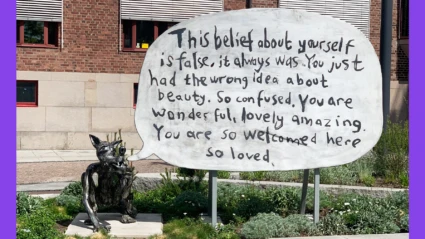 This belief about yourself
is false, it always was. You just
had the wrong idea about
beauty. So confused. You are
wonderful, lovely amazing.
You are so welcomed here
so loved.